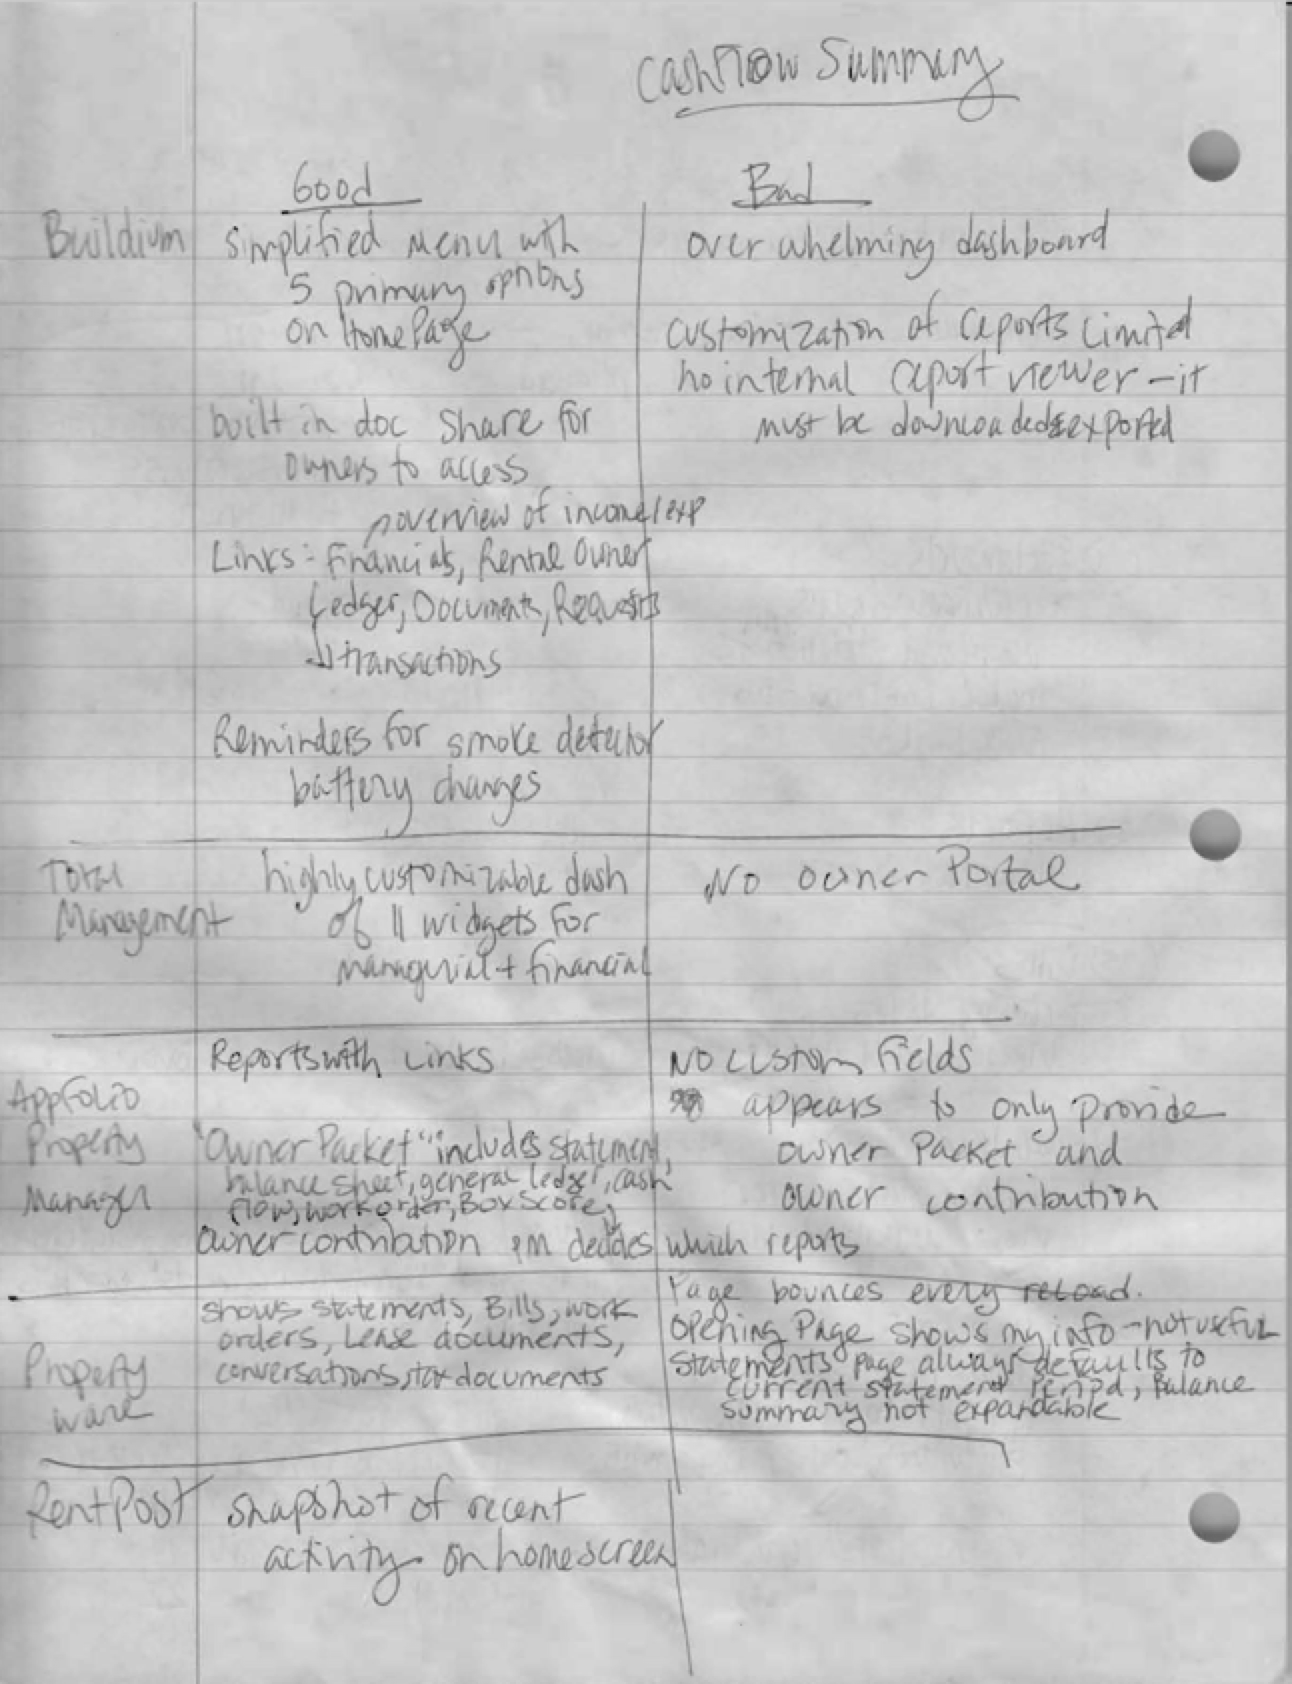 Cashflow Summary
Good
Bad
Buildium
simplified menu with
5 primary options
on HomePage
built in doc share for
owners to access
overview of income/exp
Links: Financials, Rental Owner
Ledger, Documents, Requests
transactions
Reminders for smoke detector
battery changes
over whelming dashboard
customization of reports Limited
no internal report viewer - it
must be downloaded & exported
Total
Management
highly customizable dash
of 11 widgets for
managerial + financial
No owner Portal
AppFolio
Property
Manager
Reports with Links
"Owner Packet" includes statement,
balance sheet, general ledger, cash
flow, work order, Box Score,
Owner contribution PM decides which reports
No custom fields
appears to only provide
owner Packet and
owner contribution
Property
ware
shows statements, Bills, work
orders, Lease documents,
conversations, tax documents
Page bounces every reload.
opening Page shows my info - not useful
statements page always defaults to
current statement period, Balance
summary not expandable
RentPost
snapshot of recent
activity on homescreen